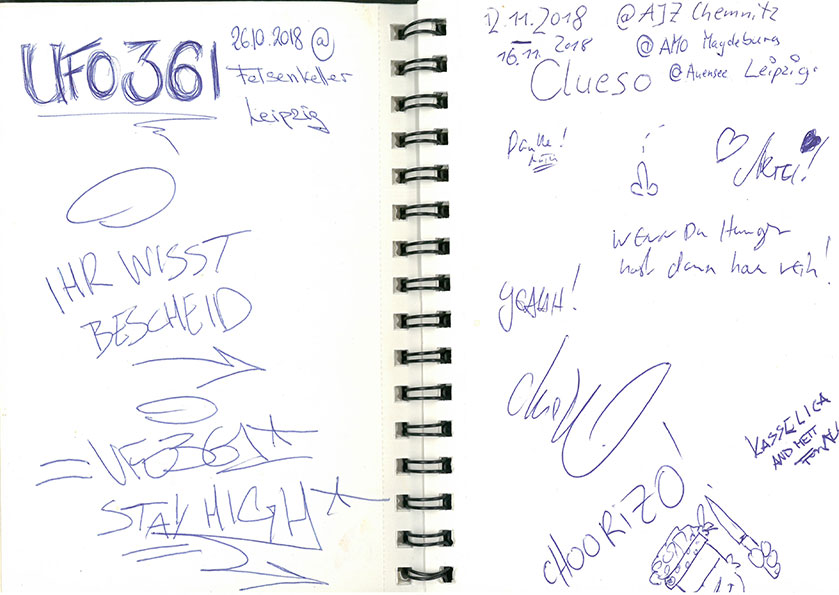 UFO361
26.10.2018 @
Felsenkeller
Leipzig
IHR WISST
BESCHEID
UFO361
STAY HIGH
12.11.2018 @AJZ Chemnitz
16.11.2018 @ AMO Magdeburg
Clueso @Auensee Leipzig
Danke!
Wenn Du Hunger
hast dann hau rein!
YEAHH!
CHOORIZO!
KASSELICA
AND METT